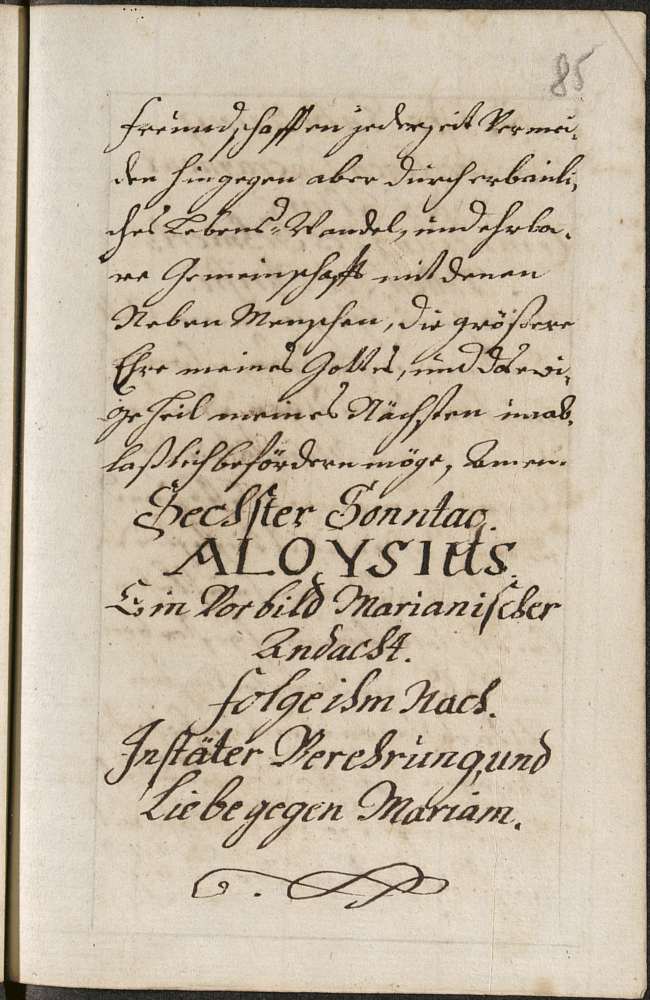 85
freündschafften jederzeit Vermei,
den hingegen aber dürch erbaüli,
ches Lebens-Wandel, ünd ehrba,
re Gemeinschafft mit denen
Neben Menschen, die größere
Ehre meines Gottes, ünd das ewi,
ge Heil meines Nächsten ünab,
laßlich befördern möge, Amen.
Sechster Sonntag.
ALOYSIUS.
Ein Vorbild Marianischer
Andacht.
folge ihm Nach.
In stäter Verehrüng, und
Liebe gegen Mariam.